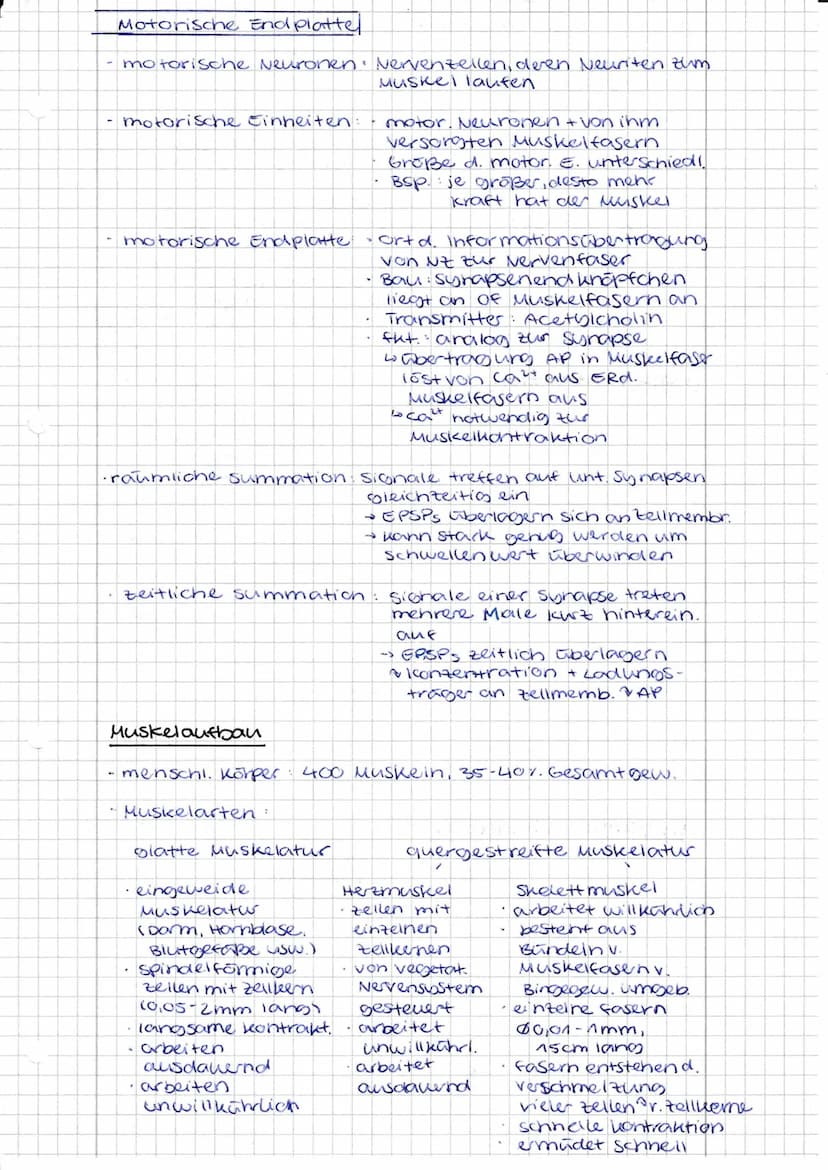 Motorische Endplatte
- motorische Neuronen: Nervenzellen, deren Neuriten zum
Muskel laufen
- motorische Einheiten: · motor. Neuronen + von ihm
versorgten Muskelfasern
· Größe d. motor. E. unterschiedl.
· Bsp.: je größer, desto mehr
Kraft hat der Muskel
- motorische Endplatte · Ort d. Informationsübertragung
von NZ zur Nervenfaser
· Bau: Synapsenendknöpfchen
liegt an OF Muskelfasern an
· Transmitter: Acetylcholin
· Fkt.: analog zur Synapse
↳ Übertragung AP in Muskelfaser
löst von Ca²⁺ aus ERd.
Muskelfasern aus
↳ Ca²⁺ notwendig zur
Muskelkontraktion
· räumliche Summation: Signale treffen auf unt. Synapsen
gleichzeitig ein
→ EPSPs überlagern sich an Zellmembr.
→ kann stark genug werden um
Schwellenwert überwinden
· zeitliche Summation: Signale einer Synapse treten
mehrere Male kurz hinterein.
auf
→ EPSPs zeitlich überlagern
↷ Konzentration + Ladungs-
träger an Zellmemb. ↷ AP
Muskelaufbau
- menschl. Körper: 400 Muskeln, 35-40% Gesamtgew.
· Muskelarten:
glatte Muskelatur quergestreifte Muskelatur
· eingeweide Herzmuskel Skelettmuskel
Muskelatur · Zellen mit · arbeitet willkührlich
(Darm, Harnblase, einzelnen · besteht aus
Blutgefäße usw.) Zellkernen Bündeln v.
· spindelförmige · von vegetat. Muskelfasern v.
Zellen mit Zellkern Nervensystem Bingegew. umgeb.
(0,05-2mm lang) gesteuert · einzelne Fasern
· langsame Kontrakt. · arbeitet Ø0,01-1mm,
· arbeiten unwillkührl. 15cm lang
ausdauernd · arbeitet · Fasern entstehen d.
· arbeiten ausdauernd Verschmelzung
unwillkührlich vieler Zellen r. Zellkerne
· schnelle Kontraktion
· ermüdet schnell